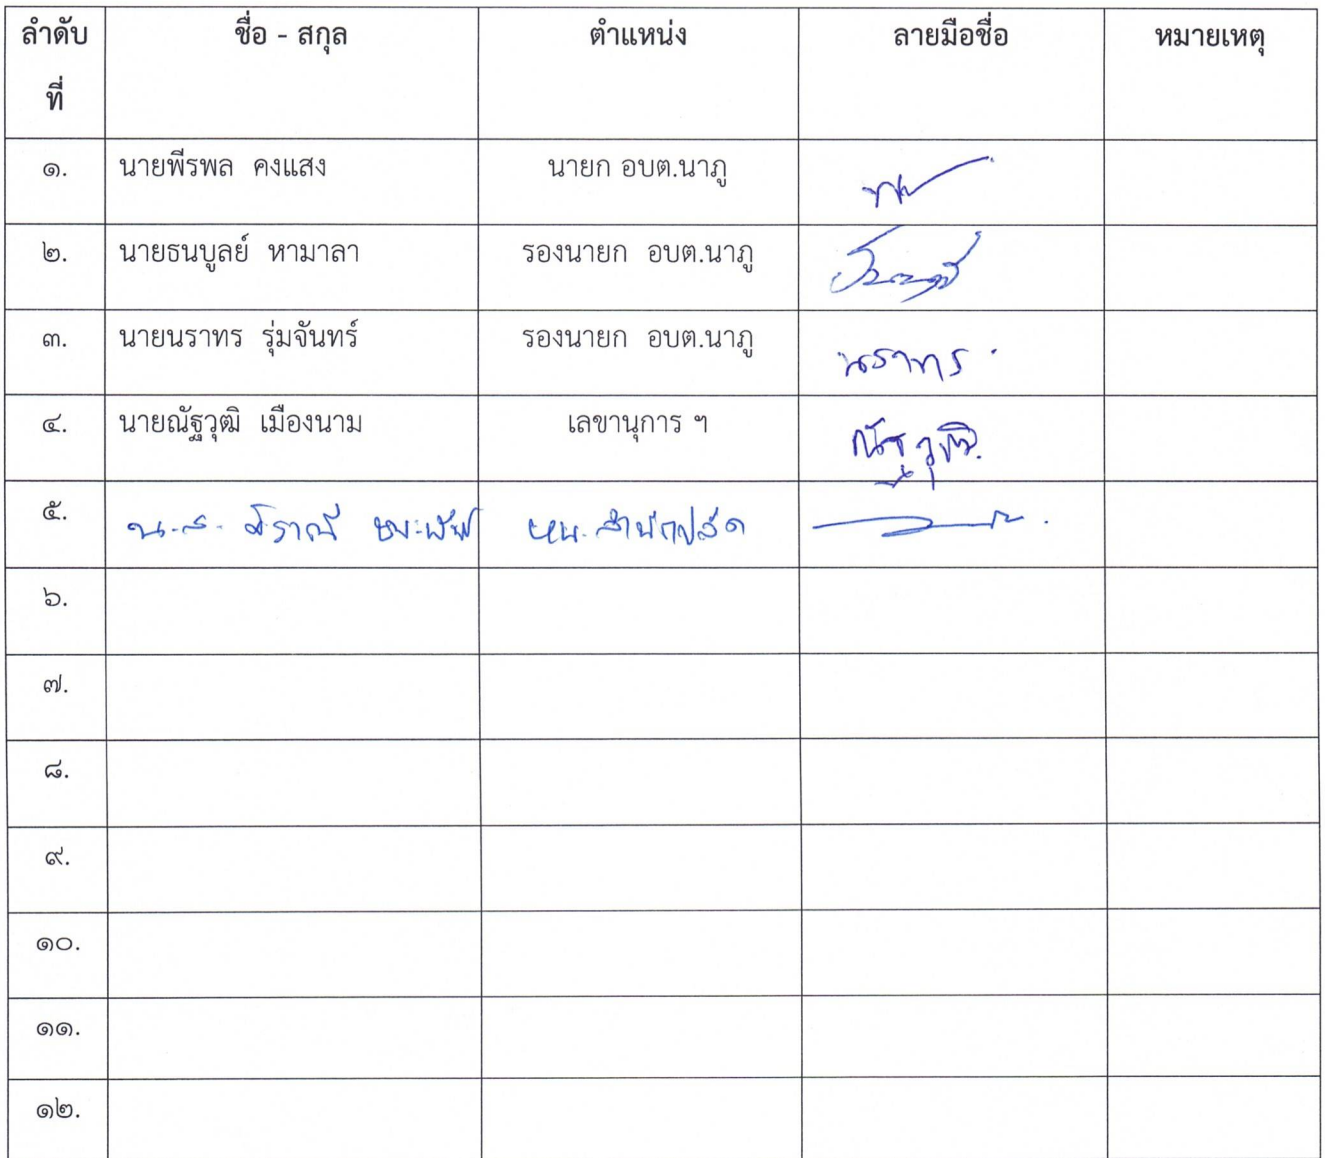 ลำดับ ชื่อ - สกุล ตำแหน่ง ลายมือชื่อ หมายเหตุ
ที่
๑. นายพีรพล คงแสง นายก อบต.นาภู
๒. นายธนบูลย์ หามาลา รองนายก อบต.นาภู
๓. นายนราทร รุ่มจันทร์ รองนายก อบต.นาภู นราทร
๔. นายณัฐวุฒิ เมืองนาม เลขานุการ ฯ ณัฐวุฒิ
๕. น.ส. หน.สำนักปลัด
๖.
๗.
๘.
๙.
๑๐.
๑๑.
๑๒.